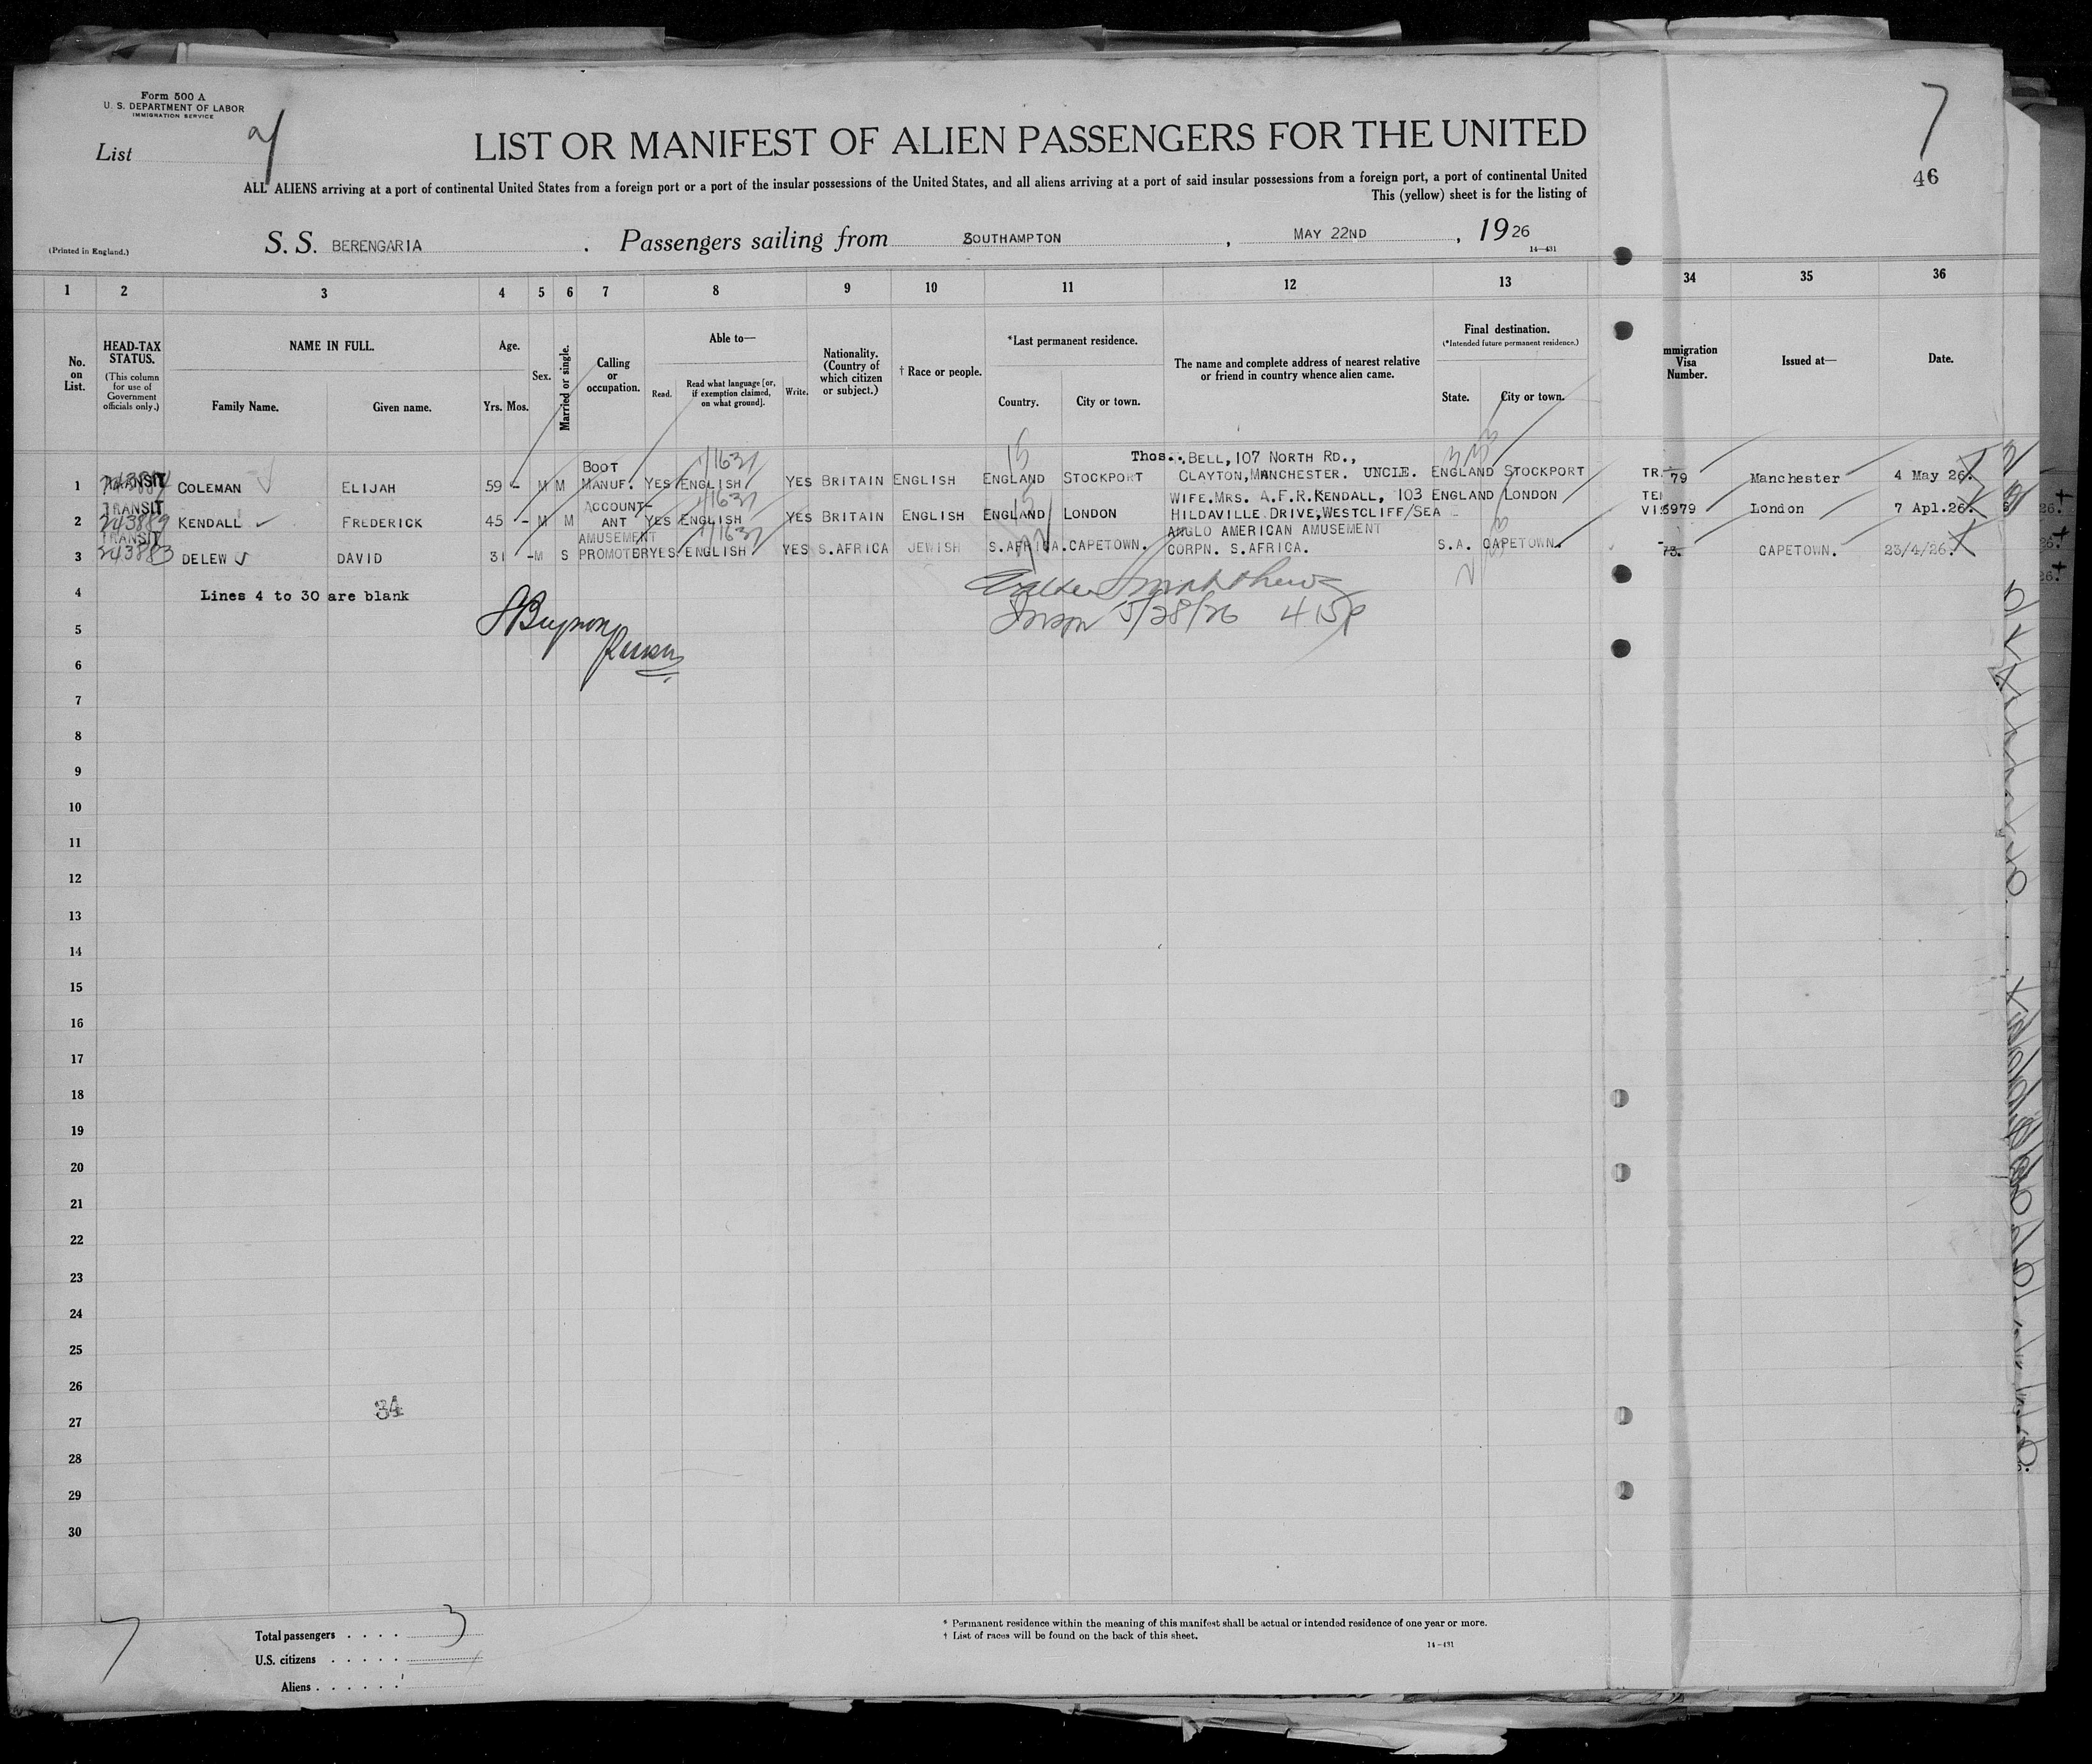 Form 500 A
U. S. DEPARTMENT OF LABOR
IMMIGRATION SERVICE
List
7
46
LIST OR MANIFEST OF ALIEN PASSENGERS FOR THE UNITED
ALL ALIENS arriving at a port of continental United States from a foreign port or a port of the insular possessions of the United States, and all aliens arriving at a port of said insular possessions from a foreign port, a port of continental United
This (yellow) sheet is for the listing of
(Printed in England.)
S. S. BERENGARIA. Passengers sailing from SOUTHAMPTON, MAY 22ND, 1926
14—431
1 2 3 4 5 6 7 8 9 10 11 12 13 34 35 36
No. on List.
HEAD-TAX STATUS.
(This column for use of Government officials only.)
NAME IN FULL.
Family Name. Given name.
Age.
Yrs. Mos.
Sex.
Married or single.
Calling or occupation.
Able to—
Read. Read what language [or, if exemption claimed, on what ground]. Write.
Nationality. (Country of which citizen or subject.)
† Race or people.
*Last permanent residence.
Country. City or town.
The name and complete address of nearest relative or friend in country whence alien came.
Final destination.
(*Intended future permanent residence.)
State. City or town.
mmigration Visa Number.
Issued at—
Date.
1 TRANSIT COLEMAN ELIJAH 59 - M M BOOT MANUF. YES ENGLISH YES BRITAIN ENGLISH ENGLAND STOCKPORT Thos. BELL, 107 NORTH RD., CLAYTON, MANCHESTER. UNCLE. ENGLAND STOCKPORT TR. 79 Manchester 4 May 26.
2 TRANSIT 243889 KENDALL FREDERICK 45 - M M ACCOUNT-ANT YES ENGLISH YES BRITAIN ENGLISH ENGLAND LONDON WIFE. MRS. A.F.R. KENDALL, 103 HILDAVILLE DRIVE, WESTCLIFF/SEA ENGLAND LONDON 6979 London 7 Apl. 26.
3 TRANSIT 243883 DELEW DAVID 31 - M S AMUSEMENT PROMOTER YES ENGLISH YES S.AFRICA JEWISH S.AFRICA. CAPETOWN. ANGLO AMERICAN AMUSEMENT CORPN. S.AFRICA. S.A. CAPETOWN. 73. CAPETOWN. 23/4/26.
4 Lines 4 to 30 are blank
5/28/26 415p
5
6
7
8
9
10
11
12
13
14
15
16
17
18
19
20
21
22
23
24
25
26
27
28
29
30
34
7
Total passengers . . . . 3
U.S. citizens . . . . .
Aliens . . . . . .
* Permanent residence within the meaning of this manifest shall be actual or intended residence of one year or more.
† List of races will be found on the back of this sheet.
14—431